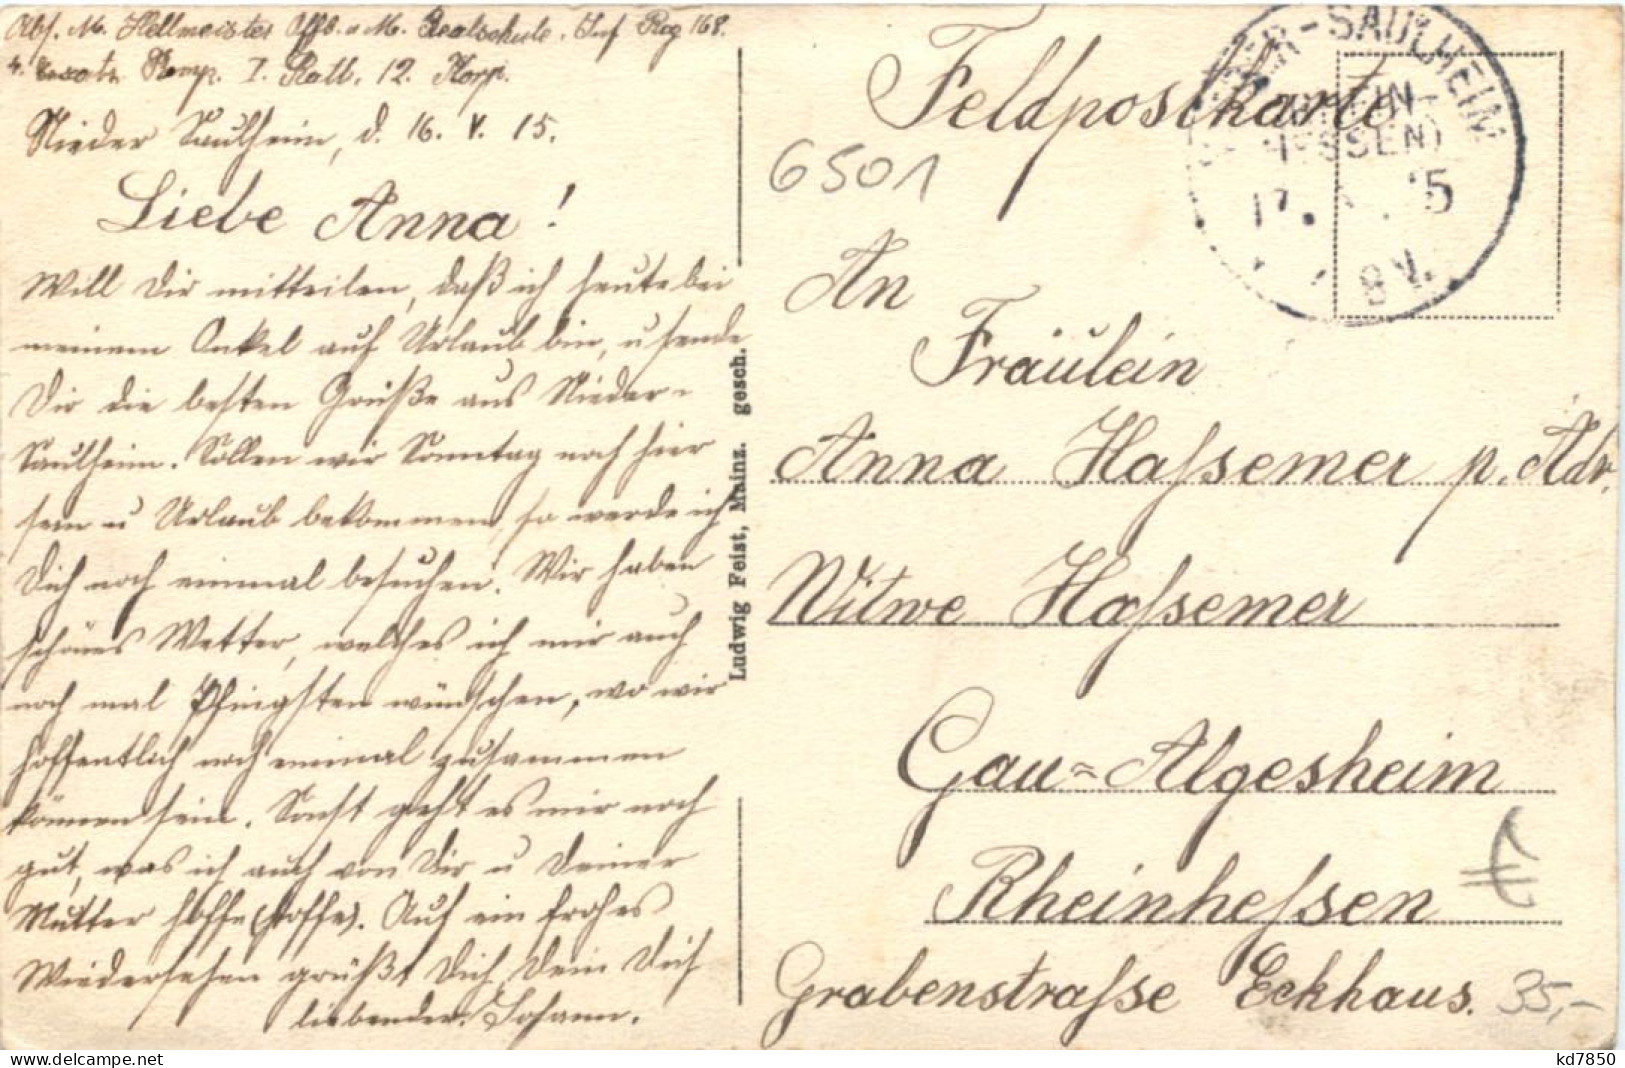 Abs. M. Hellmeister Offb. a M. Realschule. Inf Reg 168.
4. Komp. I. Batl. 12. Korp.
Nieder Saulheim, d. 16. V. 15.
Liebe Anna!
Will Dir mitteilen, daß ich heute bei
meinem Onkel auf Urlaub bin, u sende
Dir die besten Grüße aus Nieder-
Saulheim. Sollen wir Sonntag noch hier
sein u Urlaub bekommen, so werde ich
Dich noch einmal besuchen. Wir haben
schönes Wetter, welches ich mir auch
noch mal Pfingsten wünschen, wo wir
hoffentlich noch einmal zusammen
können sein. Sonst geht es mir noch
gut, was ich auch von Dir u Deiner
Mutter hoffe (hoffe). Auf ein frohes
Wiedersehen grüßt Dich Dein Dich
liebender Johann.
Ludwig Feist, Mainz. gesch.
Feldpostkarte
6501
-SAULHEIM
(HESSEN)
17. 5
8 V.
An
Fräulein
Anna Hassemer p. Adr.
Witwe Hassemer
Gau=Algesheim
Rheinhessen
€
Grabenstrasse Eckhaus.
35,-
kd7850